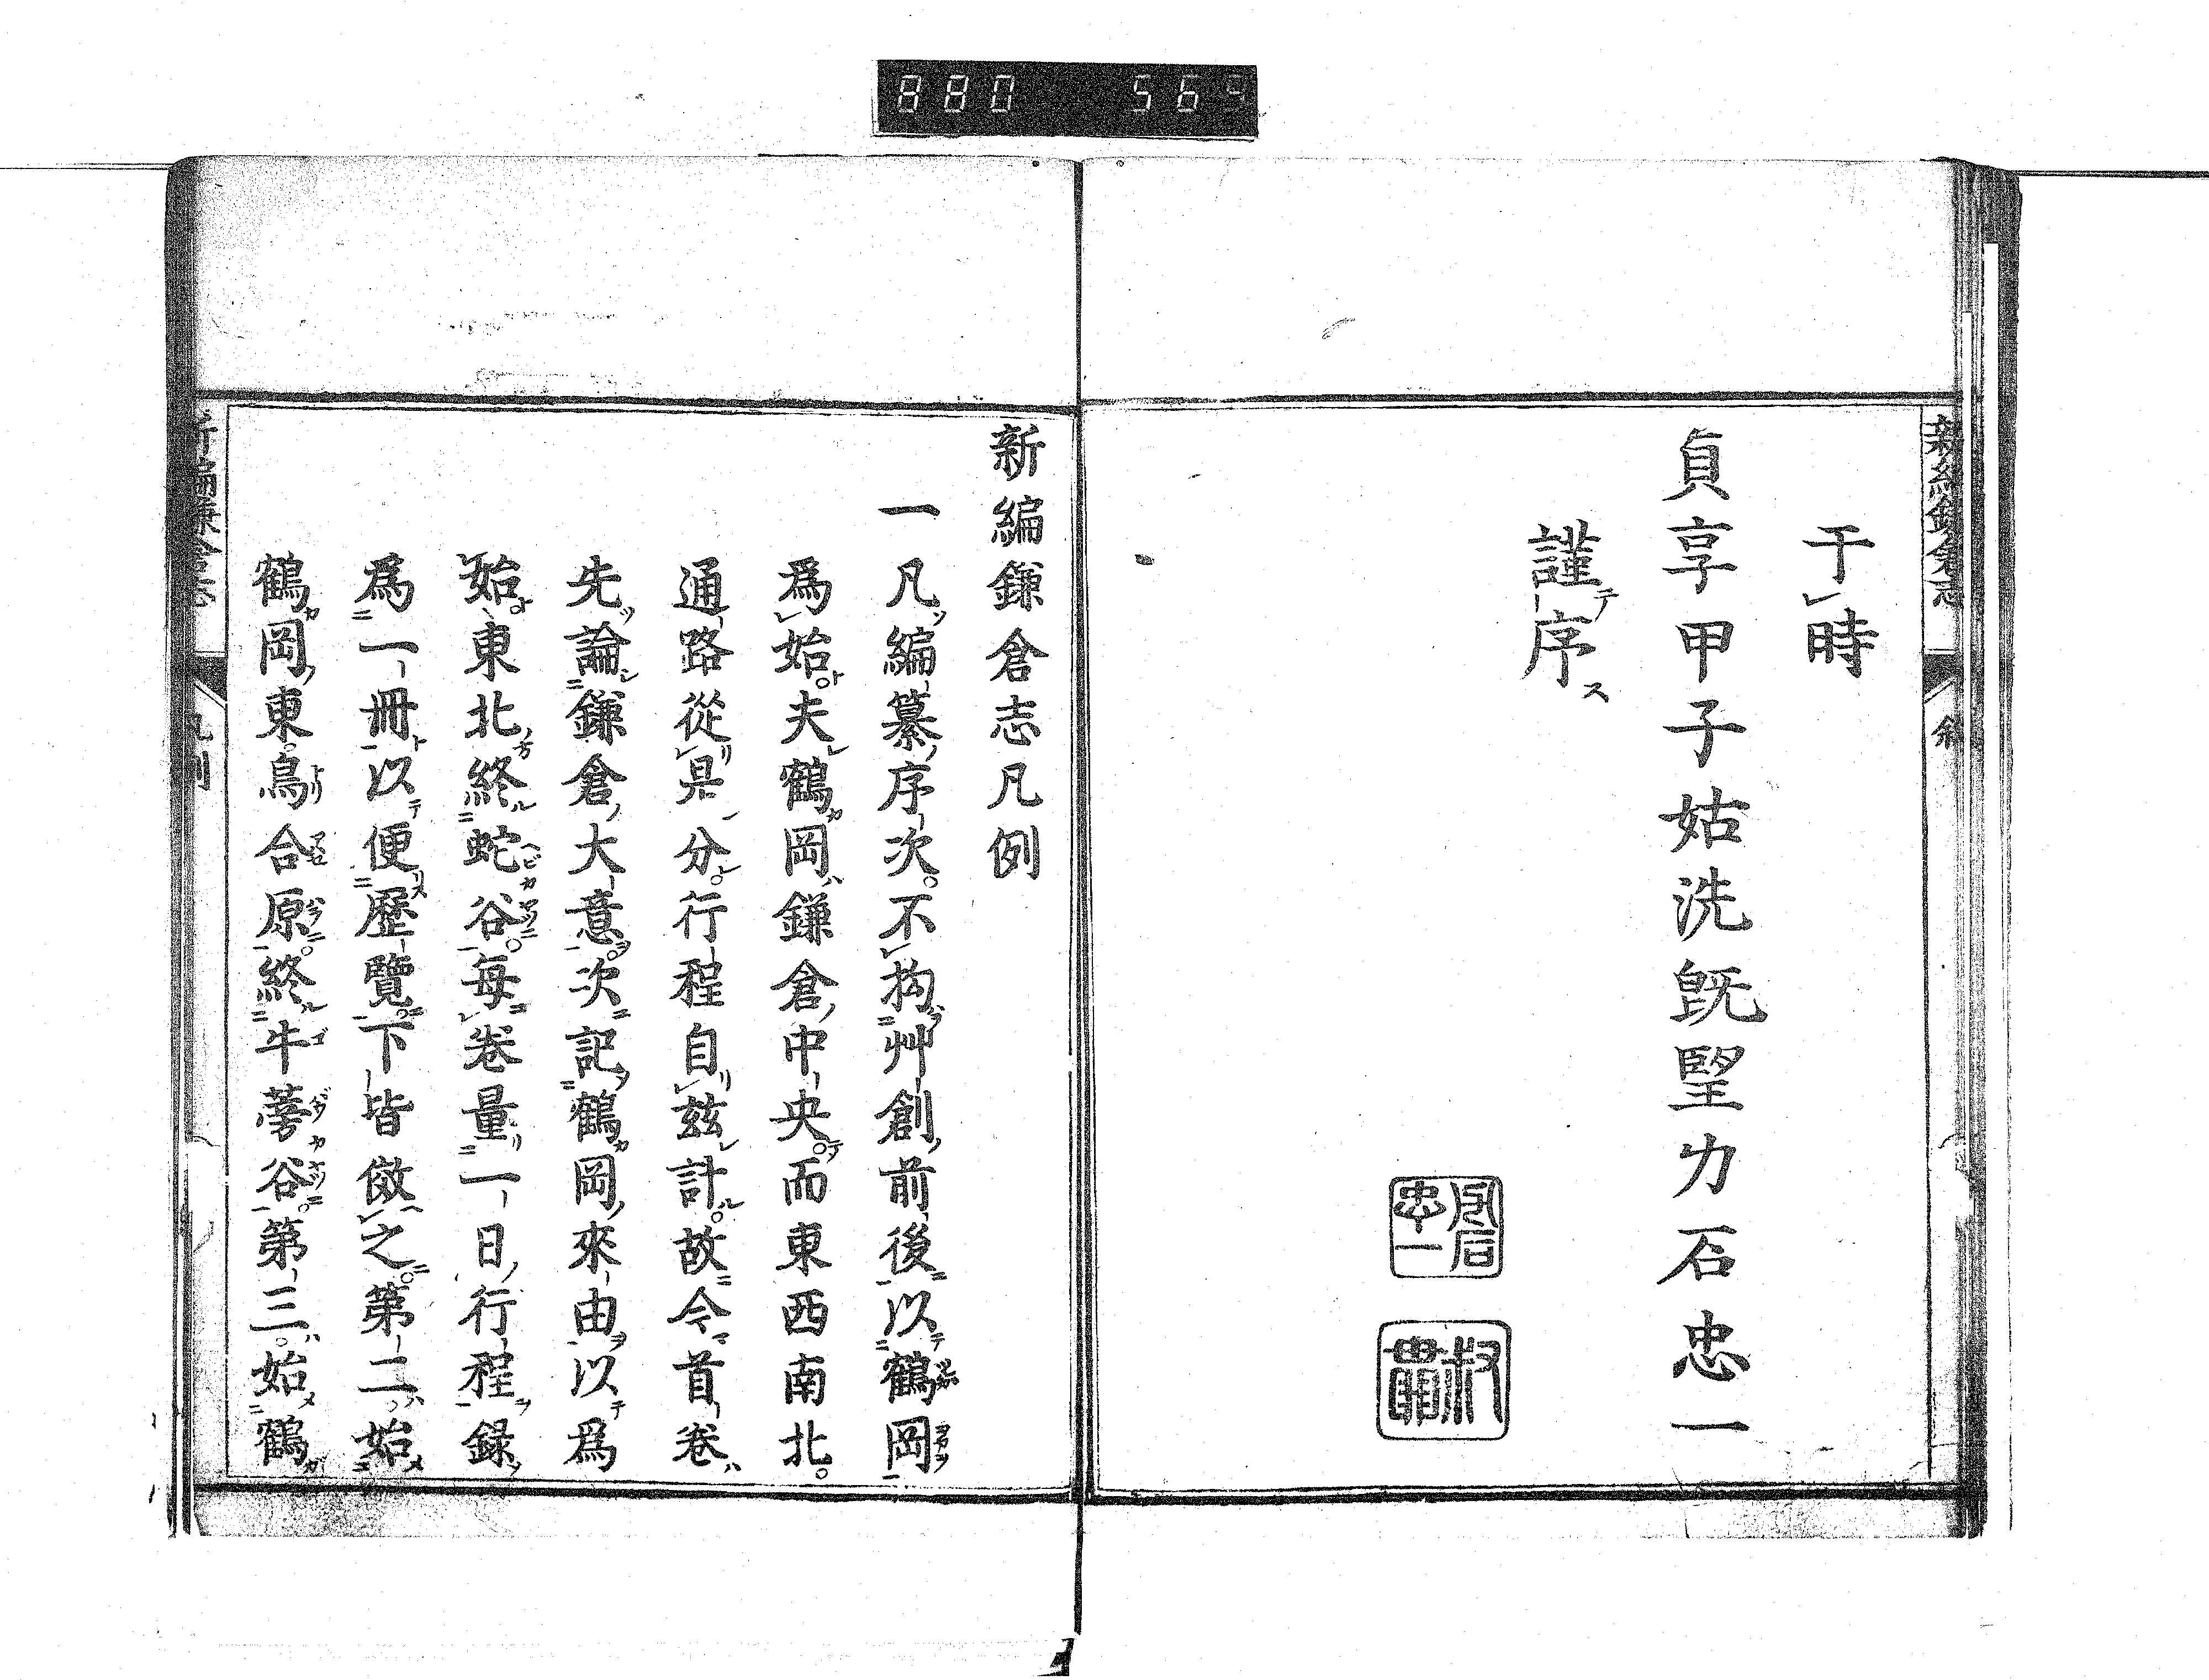 880 569
新編鎌倉志
叙
于時
貞享甲子姑洗既望力石忠一
謹序
力石
忠一
叔貫
新編鎌倉志凡例
一凡編纂序次。不拘艸創前後以鶴岡
爲始。夫鶴岡鎌倉中央。而東西南北。
通路從是分。行程自玆計。故今首卷
先論鎌倉大意。次記鶴岡來由以爲
始。東北終蛇谷。每卷量一日行程錄
爲一冊以便歷覽。下皆倣之。第二始
鶴岡東。鳥合原。終牛蒡谷。第三。始鶴
新編鎌倉志
凡例